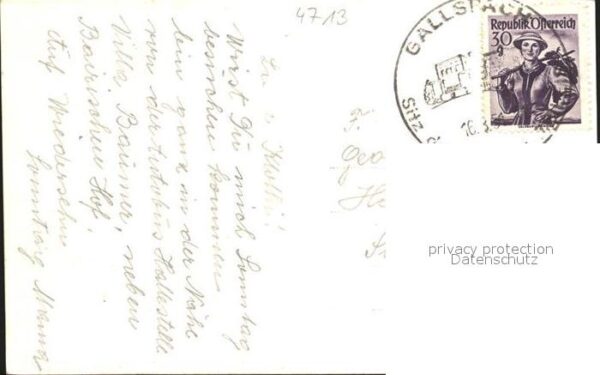 4713
GALLSPACH
Sitz
16.
Republik Österreich
30
g
Wirst Du mich Sonntag
besuchen kommen
bin ganz in der Nähe
von der Autobus Haltestelle
Villa Baumer, neben
Bairischen Hof.
Auf Wiedersehn
Sonntag Mama
privacy protection
Datenschutz